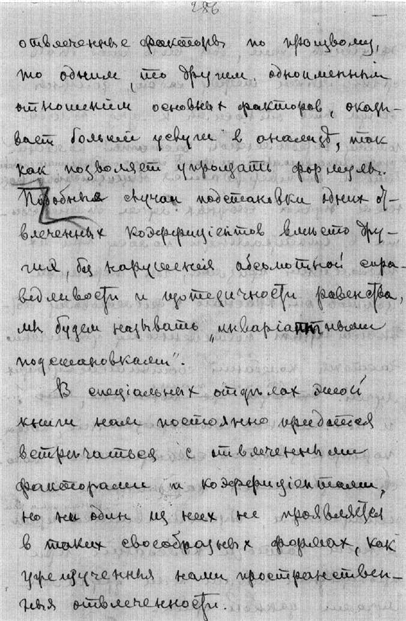 286
отвлеченные факторы по произволу,
то одним, то другим одноименным
отношением основных факторов, оказы-
вает большие услуги в анализѣ, так
как позволяет упрощать формулы.
Подобные случаи подстановки одних от-
влеченных коэффициентов вместо дру-
гих, без нарушения абсолютной спра-
ведливости и тождества равенства,
мы будем называть „инваріантными
подстановками".
В спеціальных отдѣлах этой
книги нам постоянно придется
встрѣчаться с отвлеченными
факторами и коэффиціентами,
но ни один из них не проявляется
в таких своеобразных формах, как
изученныя нами пространствен-
ныя отвлеченности.